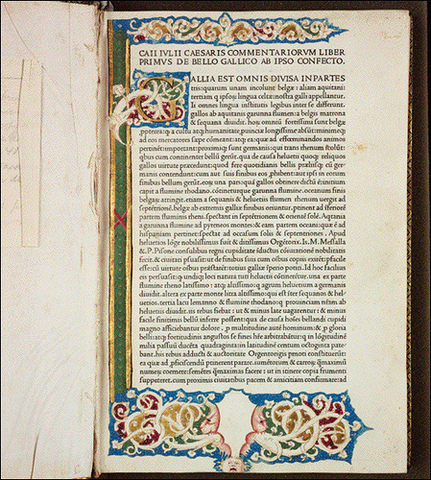 CAII IVLII CAESARIS COMMENTARIORVM LIBER
PRIMVS DE BELLO GALLICO AB IPSO CONFECTO.
GALLIA EST OMNIS DIVISA IN PARTES
tris: quarum unam incolunt belgæ: aliam aquitani:
tertiam q ipsorum lingua celtæ: nostra galli appellantur.
Ii omnes lingua institutis legibus inter se differunt.
gallos ab aquitanis garunna flumen: a belgis matrona
& sequana diuidit. horum omnium fortissimi sunt belgæ
longissime absunt: minimeq
ad eos mercatores sæpe cōmeant: atq ea quæ ad effeminandos animos
pertinent important: proximiq sunt germanis: qui trans rhenum
quibus cum continenter bellum gerunt. qua de causa heluetii quoq reliquos
gallos uirtute præcedunt: quod fere quotidianis bellis prœliisq cum ger
manis contendunt: cum aut suis finibus eos phibent: aut ipsi in eorum
finibus bellum gerunt. eorum una pars: quā gallos obtinere dictū ē: initium
capit a flumine rhodano. cōtinetur garunna flumine. oceano: finibus
belgarum: attingit etiam a sequanis & heluetiis flumen rhenum: uergit ad
septētrionē. belgæ ab extremis galliæ finibus oriuntur. ptinent ad īferiorē
partem fluminis rheni. spectant in septētrionem & orientē solē. Aqtania
a garunna flumine ad pyreneos montes: & eam partem oceani: quæ ad
hispaniam pertinet: spectat ad occasum solis & septentriones. Apud
heluetios lōge nobilissimus fuit & ditissimus Orgētorix. Is. M. Messalla
& P. Pisone consulibus regni cupiditate īductus cōiurationē nobilitatis
fecit. & ciuitati psuasit: ut de finibus suis cum oibus copiis exirēt: pfacile
esse: cū uirtute oibus præstarēt: totius galliæ īperio potiri. Id hoc facilius
eis persuasit: q undiq loci natura heluetii cōtinētur. una ex parte
flumine rheno latissimo: atq altissimo: q agrum heluetium a germanis
diuidit. altera ex parte monte Iura altissimo: qui est īter sequanos & hel
uetios. tertia lacu lemanno & flumine rhodano: q prouinciam nrām ab
heluetiis diuidit. iis rebus fiebat: ut & minus late uagarentur: & minus
facile finitimis bellū inferre possent: qua de causa hoies bellandi cupidi
magno afficiebantur dolore. p multitudine autē hominum: & p gloria
belli: atq fortitudinis angustos se fines hīre arbitrabātur: q in lōgitudinē
milia passuū ducēta quadraginta: in latitudinē centum octoginta pate
bant. his rebus adducti & auctoritate Orgentorigis pmoti cōstituerūt:
ea quæ ad pficiscendū prinerent parare. iumētorum & carrorum q̄maximū
numerum coemere: semētes q̄maximas facere: ut in itinere copia frumenti
suppeteret. cum proximis ciuitatibus pacem & amicitiam confirmare: ad